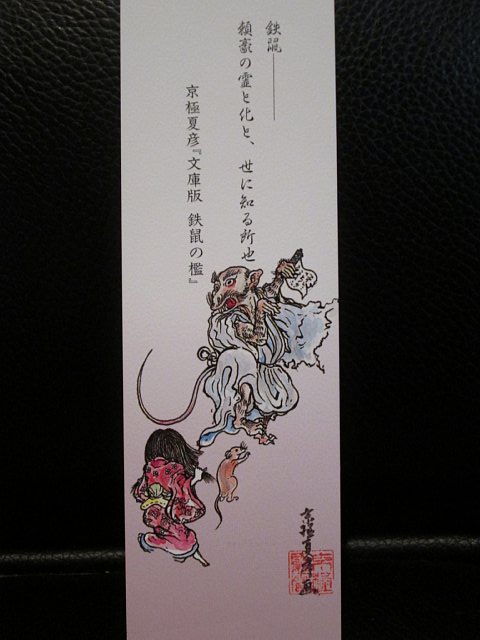 鉄鼠――――
頼豪の霊と化と、世に知る所也
京極夏彦『文庫版 鉄鼠の檻』
京極夏彦画